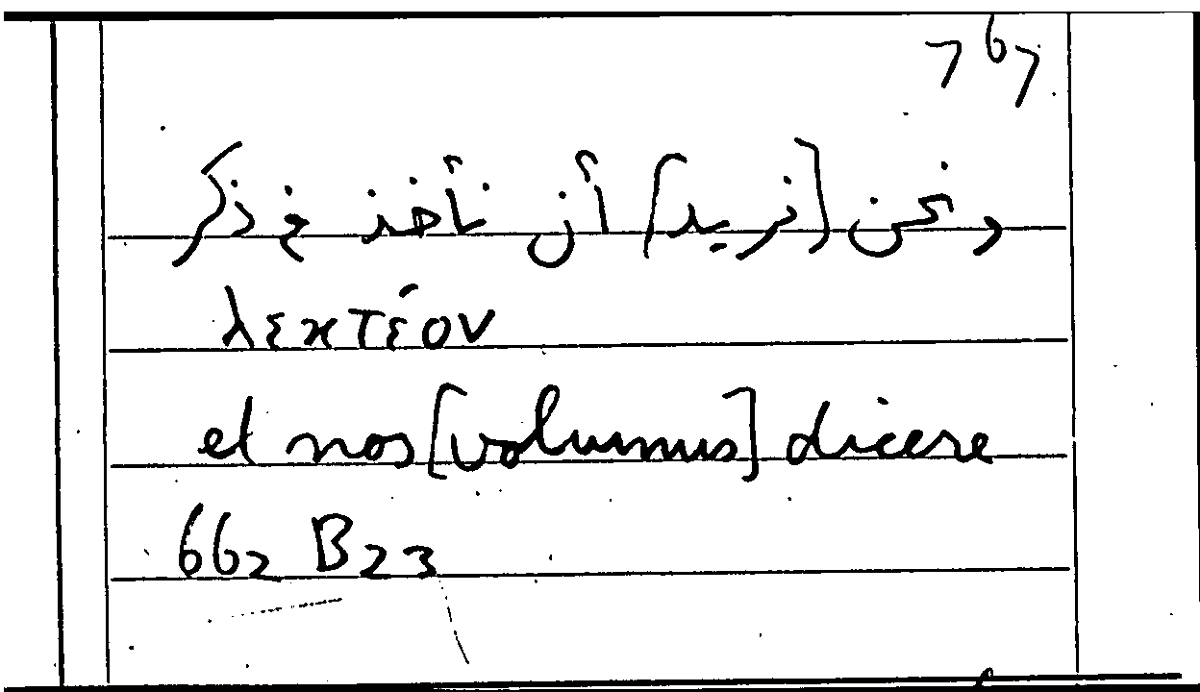 767
ونحن [نريد] أن نأخذ في ذكر
λεκτέον
et nos [volumus] dicere
662 B23